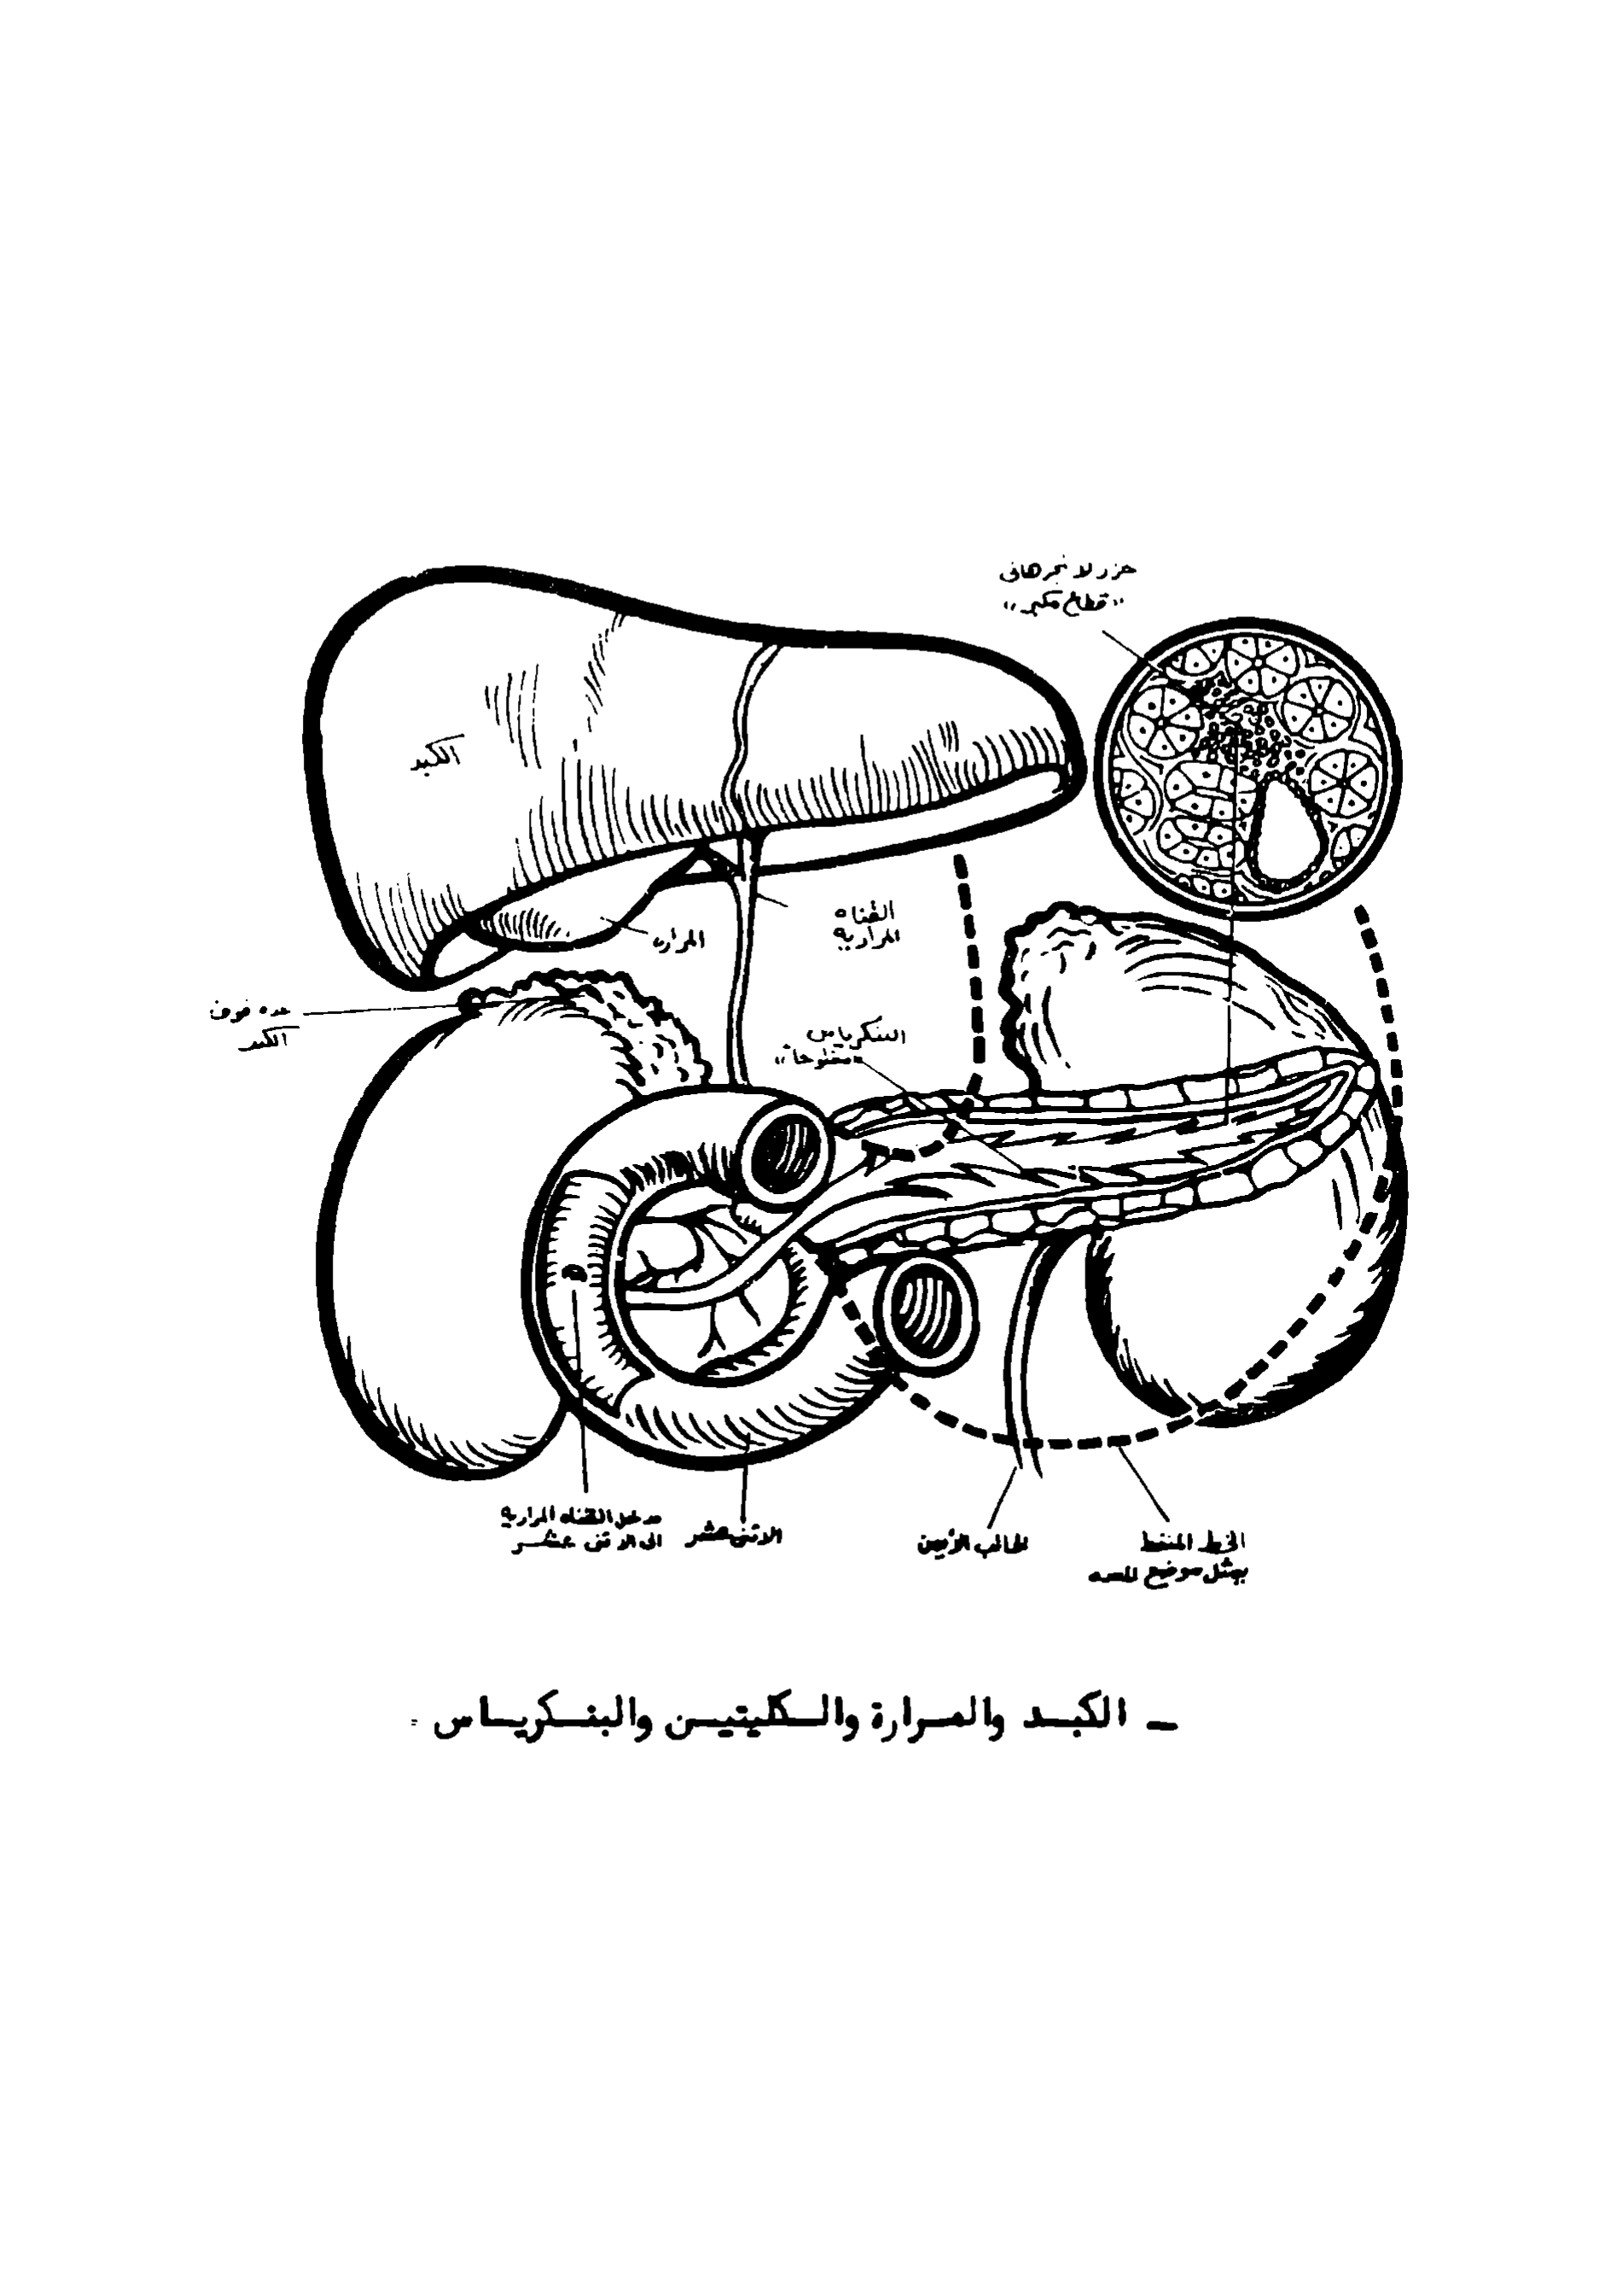 جزر لانجرهانى
"قطاع مكبر"
الكبد
القناه
المراريه
المراره
غده فوق
الكبد
البنكرياس
"مفتوحا"
مدخل القناه المراريه
الى الاثنى عشر
الاثنى عشر
الحالب الأيمن
الخط المنقط
يمثل موضع المعده
ـ الكبـد والمـرارة والـكليتيـن والبنـكريـاس